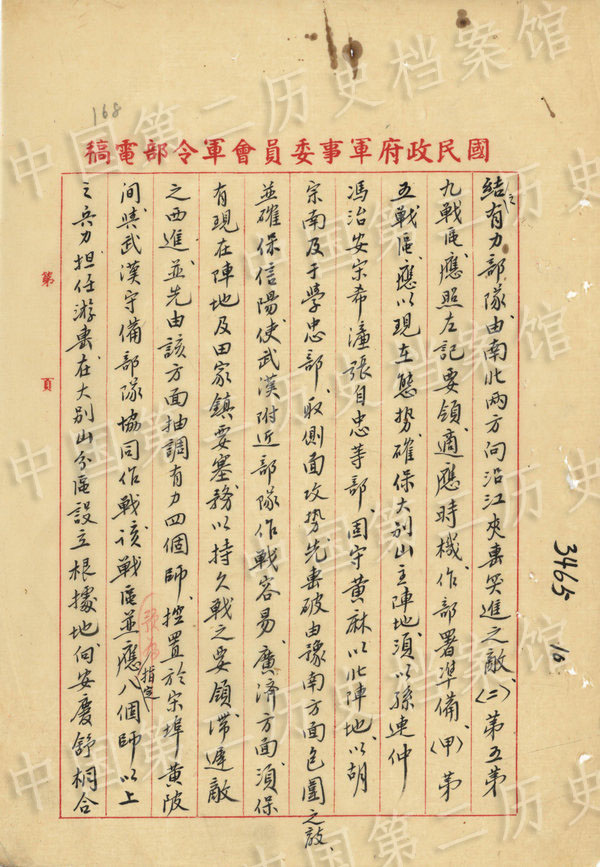 168
國民政府軍事委員會軍令部電稿
結有力部隊由南北兩方向沿江夾擊突進之敵(二)第五第
九戰區應照左記要領適應時機作部署準備(甲)第
五戰區應以現在態勢確保大別山主陣地須以孫連仲
馮治安宋希濂張自忠等部固守黃麻以北陣地以胡
宗南及于學忠部取側面攻勢先擊破由豫南方面包圍之敵
並確保信陽使武漢附近部隊作戰容易廣濟方面須保
有現在陣地及田家鎮要塞務以持久戰之要領滯遲敵
之西進並先由該方面抽調有力四個師控置於宋埠黃陂
間與武漢守備部隊協同作戰該戰區並應預為指定八個師以上
之兵力担任游擊在大別山分區設立根據地向安慶舒桐合
第 頁
3465
16
中国第二历史档案馆